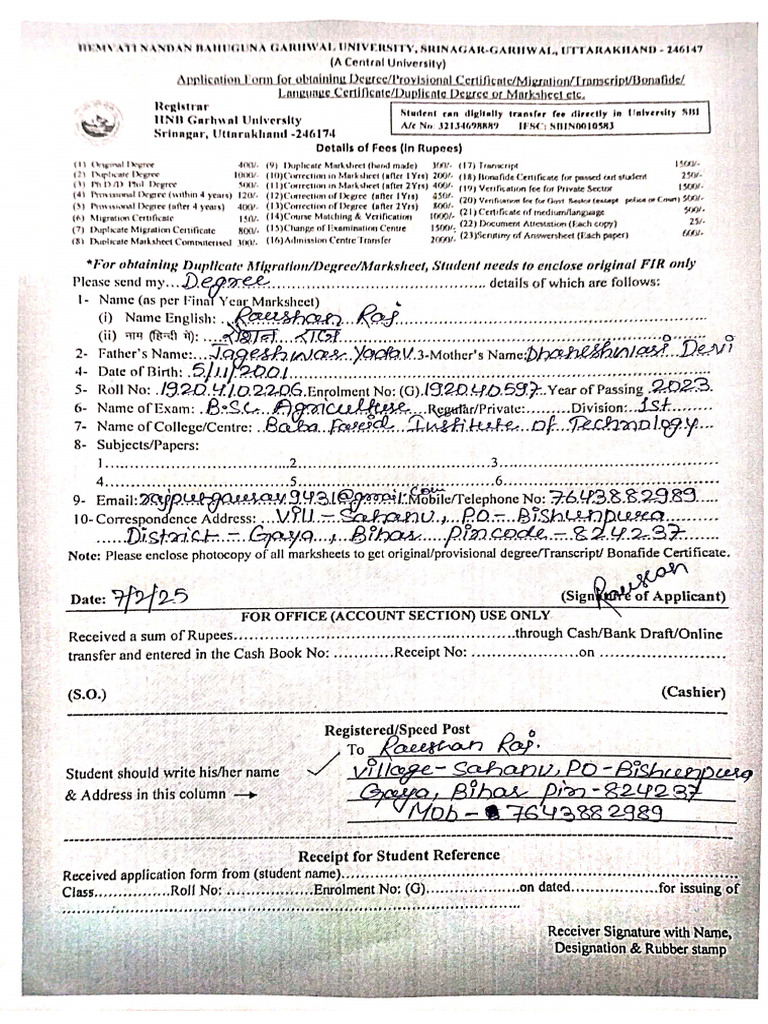 HEMVATI NANDAN BAHUGUNA GARHWAL UNIVERSITY, SRINAGAR-GARHWAL, UTTARAKHAND - 246147
(A Central University)
Application Form for obtaining Degree/Provisional Certificate/Migration/Transcript/Bonafide/
Language Certificate/Duplicate Degree or Marksheet etc.
Registrar
HNB Garhwal University
Srinagar, Uttarakhand -246174
Student can digitally transfer fee directly in University SBI
A/c No: 32134698889 IFSC: SBIN0010583
Details of Fees (in Rupees)
(1) Original Degree 400/-
(2) Duplicate Degree 1000/-
(3) Ph.D/D. Phil. Degree 500/-
(4) Provisional Degree (within 4 years) 120/-
(5) Provisional Degree (after 4 years) 400/-
(6) Migration Certificate 150/-
(7) Duplicate Migration Certificate 800/-
(8) Duplicate Marksheet Computerised 300/-
(9) Duplicate Marksheet (hand made) 300/-
(10) Correction in Marksheet (after 1Yrs) 200/-
(11) Correction in Marksheet (after 2Yrs) 400/-
(12) Correction of Degree (after 1Yrs) 450/-
(13) Correction of Degree (after 2Yrs) 800/-
(14) Course Matching & Verification 1000/-
(15) Change of Examination Centre 1500/-
(16) Admission Centre Transfer 2000/-
(17) Transcript 1500/-
(18) Bonafide Certificate for passed out student 250/-
(19) Verification fee for Private Sector 1500/-
(20) Verification fee for Govt Sector (except police or Court) 500/-
(21) Certificate of medium/language 500/-
(22) Document Attestation (Each copy) 25/-
(23) Scrutiny of Answersheet (Each paper) 600/-
*For obtaining Duplicate Migration/Degree/Marksheet, Student needs to enclose original FIR only
Please send my... Degree ... details of which are follows:
1- Name (as per Final Year Marksheet)
(i) Name English: Raushan Raj
(ii) नाम (हिन्दी में): रौशन राज
2- Father's Name: Jageshwar Yadav 3-Mother's Name: Dhaneshwari Devi
4- Date of Birth: 5/11/2001
5- Roll No: 19204102206 Enrolment No: (G) 192040597 Year of Passing 2023
6- Name of Exam: B.Sc Agriculture Regular/Private: Division: 1st
7- Name of College/Centre: Baba Farid Institute of Technology
8- Subjects/Papers:
1 2 3
4 5 6
9- Email: rajputgaurav9431@gmail.com Mobile/Telephone No: 7643882989
10- Correspondence Address: Vill - Sahanv, PO - Bishunpura
District - Gaya, Bihar Pincode - 824237
Note: Please enclose photocopy of all marksheets to get original/provisional degree/Transcript/ Bonafide Certificate.
Raushan
Date: 7/2/25 (Signature of Applicant)
FOR OFFICE (ACCOUNT SECTION) USE ONLY
Received a sum of Rupees through Cash/Bank Draft/Online
transfer and entered in the Cash Book No: Receipt No: on
(S.O.) (Cashier)
Registered/Speed Post
To Raushan Raj.
Student should write his/her name Village - Sahanv, PO - Bishunpura
& Address in this column → Gaya, Bihar Pin - 824237
Mob - 7643882989
Receipt for Student Reference
Received application form from (student name)
Class Roll No: Enrolment No: (G) on dated for issuing of
Receiver Signature with Name,
Designation & Rubber stamp